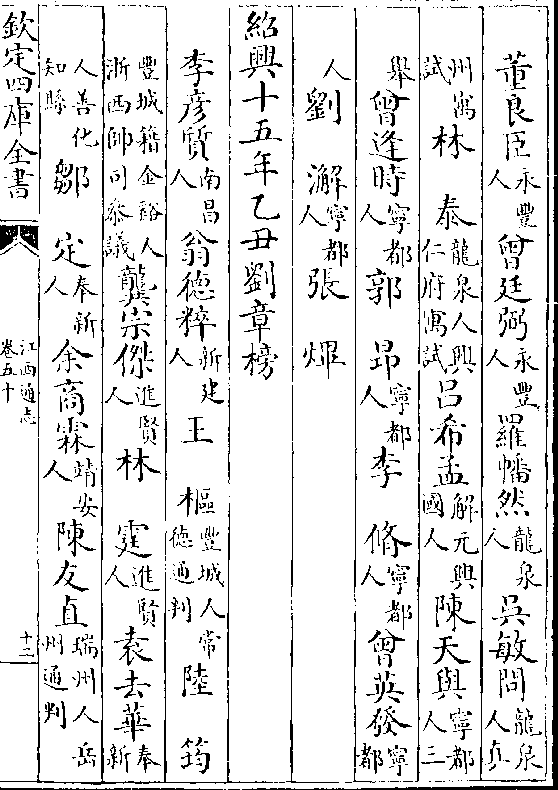 董良臣永豐人曾廷弼永豐人羅幡然龍泉人吳敏問龍泉人真
州寓試林 泰龍泉人興仁府寓試吕希孟解元興國人陳天與寧都人三
舉曾逢時寧都人郭 昂寧都人李 脩寧都人曾英發寧都
人劉 澥寧都人張 燡
紹興十五年乙丑劉章榜
李彦質南昌人翁德粹新建人王 樞豐城人常德通判陸 筠
豐城籍金谿人浙西帥司叅議龔宗傑進賢人林 霆進賢人袁去華奉新
人善化知縣鄒 定奉新人余商霖靖安人陳友直瑞州人岳州通判
欽定四庫全書
江西通志
卷五十
十二